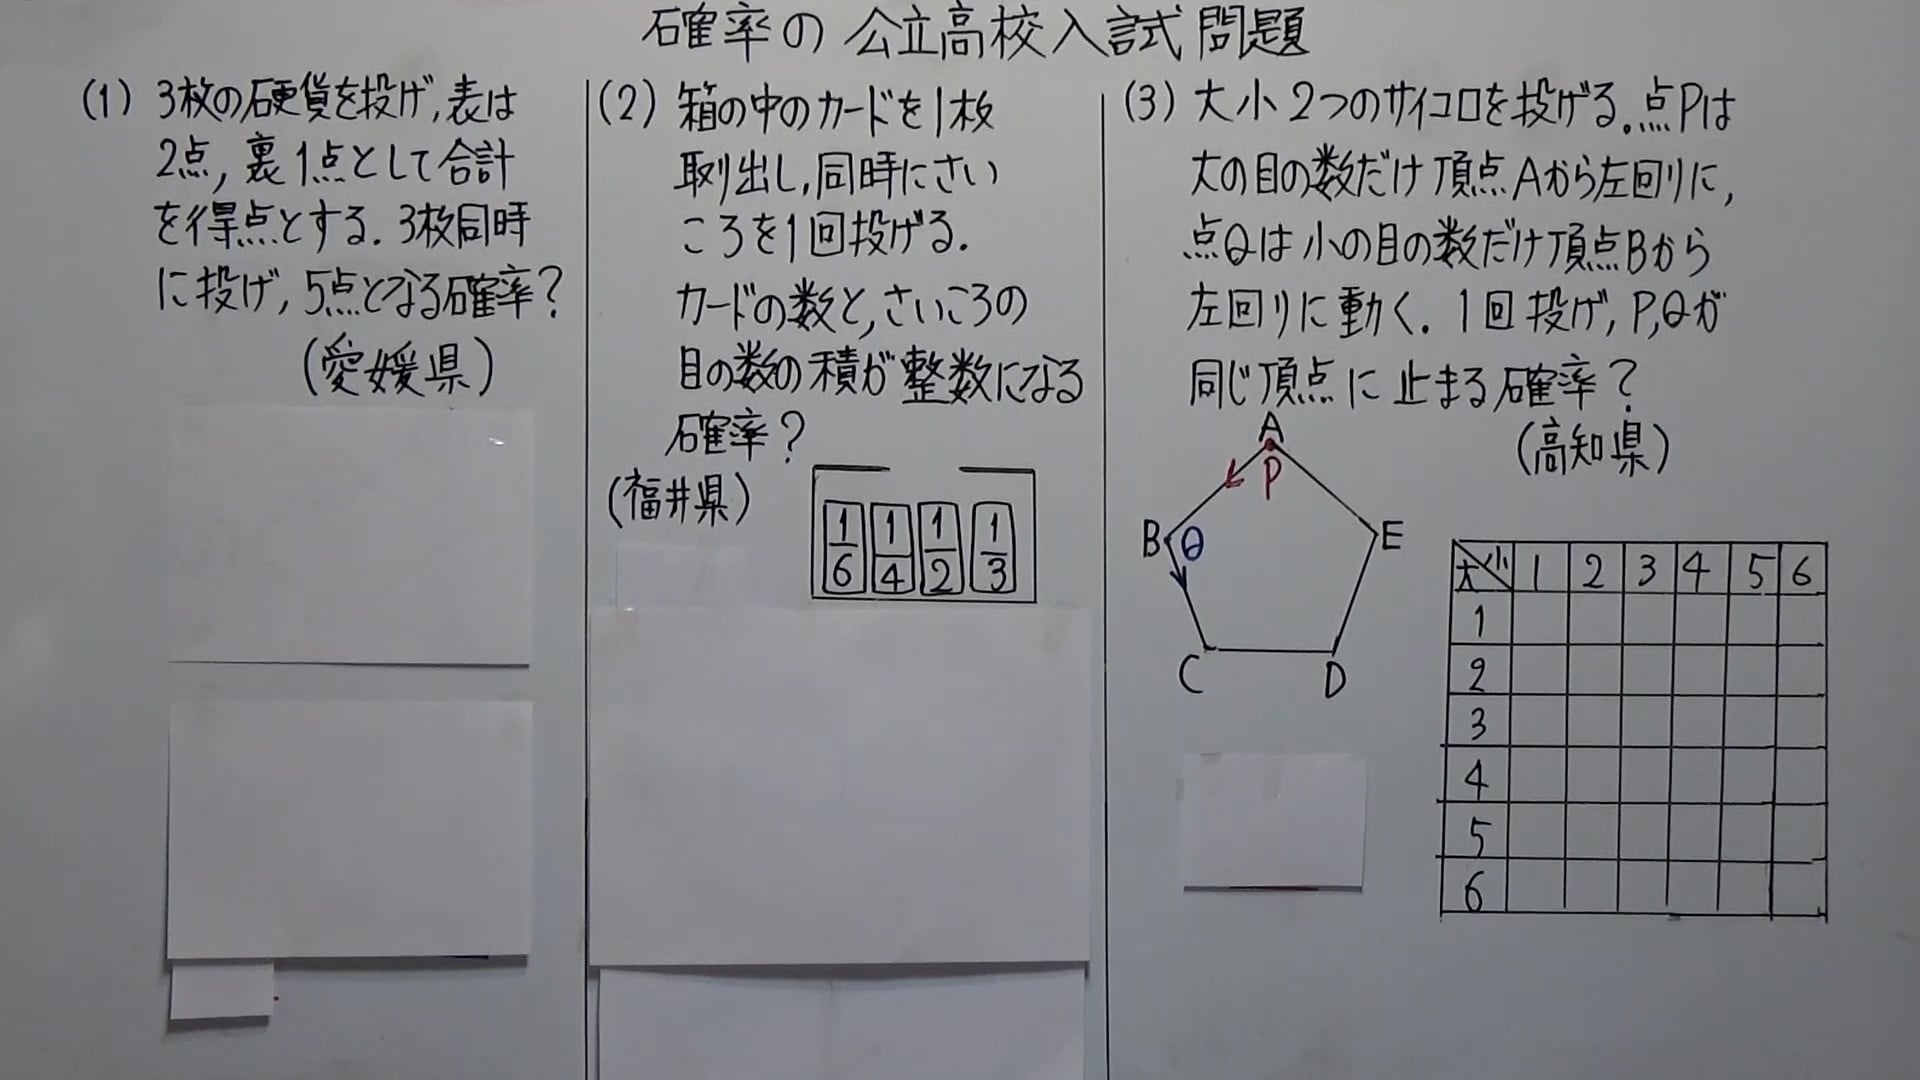 確率の公立高校入試問題
(1) 3枚の硬貨を投げ,表は
2点,裏1点として合計
を得点とする.3枚同時
に投げ,5点となる確率?
(愛媛県)
(2) 箱の中のカードを1枚
取り出し,同時にさい
ころを1回投げる.
カードの数と,さいころの
目の数の積が整数になる
確率?
(福井県)
1/6 1/4 1/2 1/3
(3) 大小2つのサイコロを投げる.点Pは
大の目の数だけ頂点Aから左回りに,
点Qは小の目の数だけ頂点Bから
左回りに動く.1回投げ,P,Qが
同じ頂点に止まる確率?
(高知県)
A
P
B Q
E
C
D
大 小 1 2 3 4 5 6
1
2
3
4
5
6